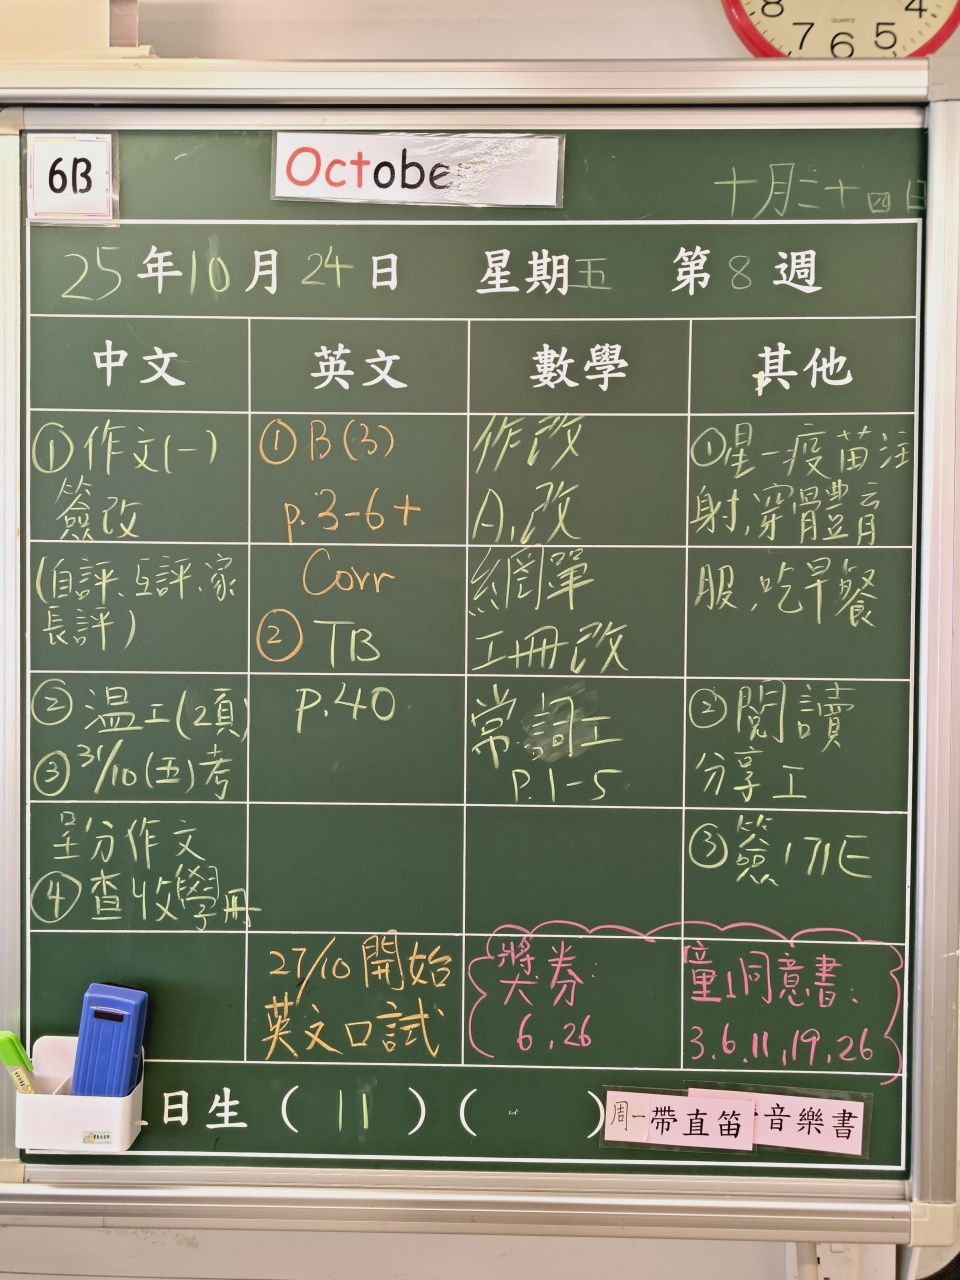 8 4
7 6 5
QUARTZ
6B
October
十月二十四日
25年10月24日 星期五 第8週
中文 英文 數學 其他
①作文(一)
簽改
(自評、互評、家
長評)
②溫工(2頁)
③31/10(五)考
呈分作文
④查收學冊
①B(3)
p.3-6+
Corr
②TB
p.40
27/10開始
英文口試
作改
A.改
網單
工冊改
常詞工
P.1-5
獎券:
6,26
①星一疫苗注
射,穿體育
服,吃早餐
②閱讀
分享工
③簽171E
同意書:
3.6.11,19,26
日生(11)( )
周一帶直笛 音樂書